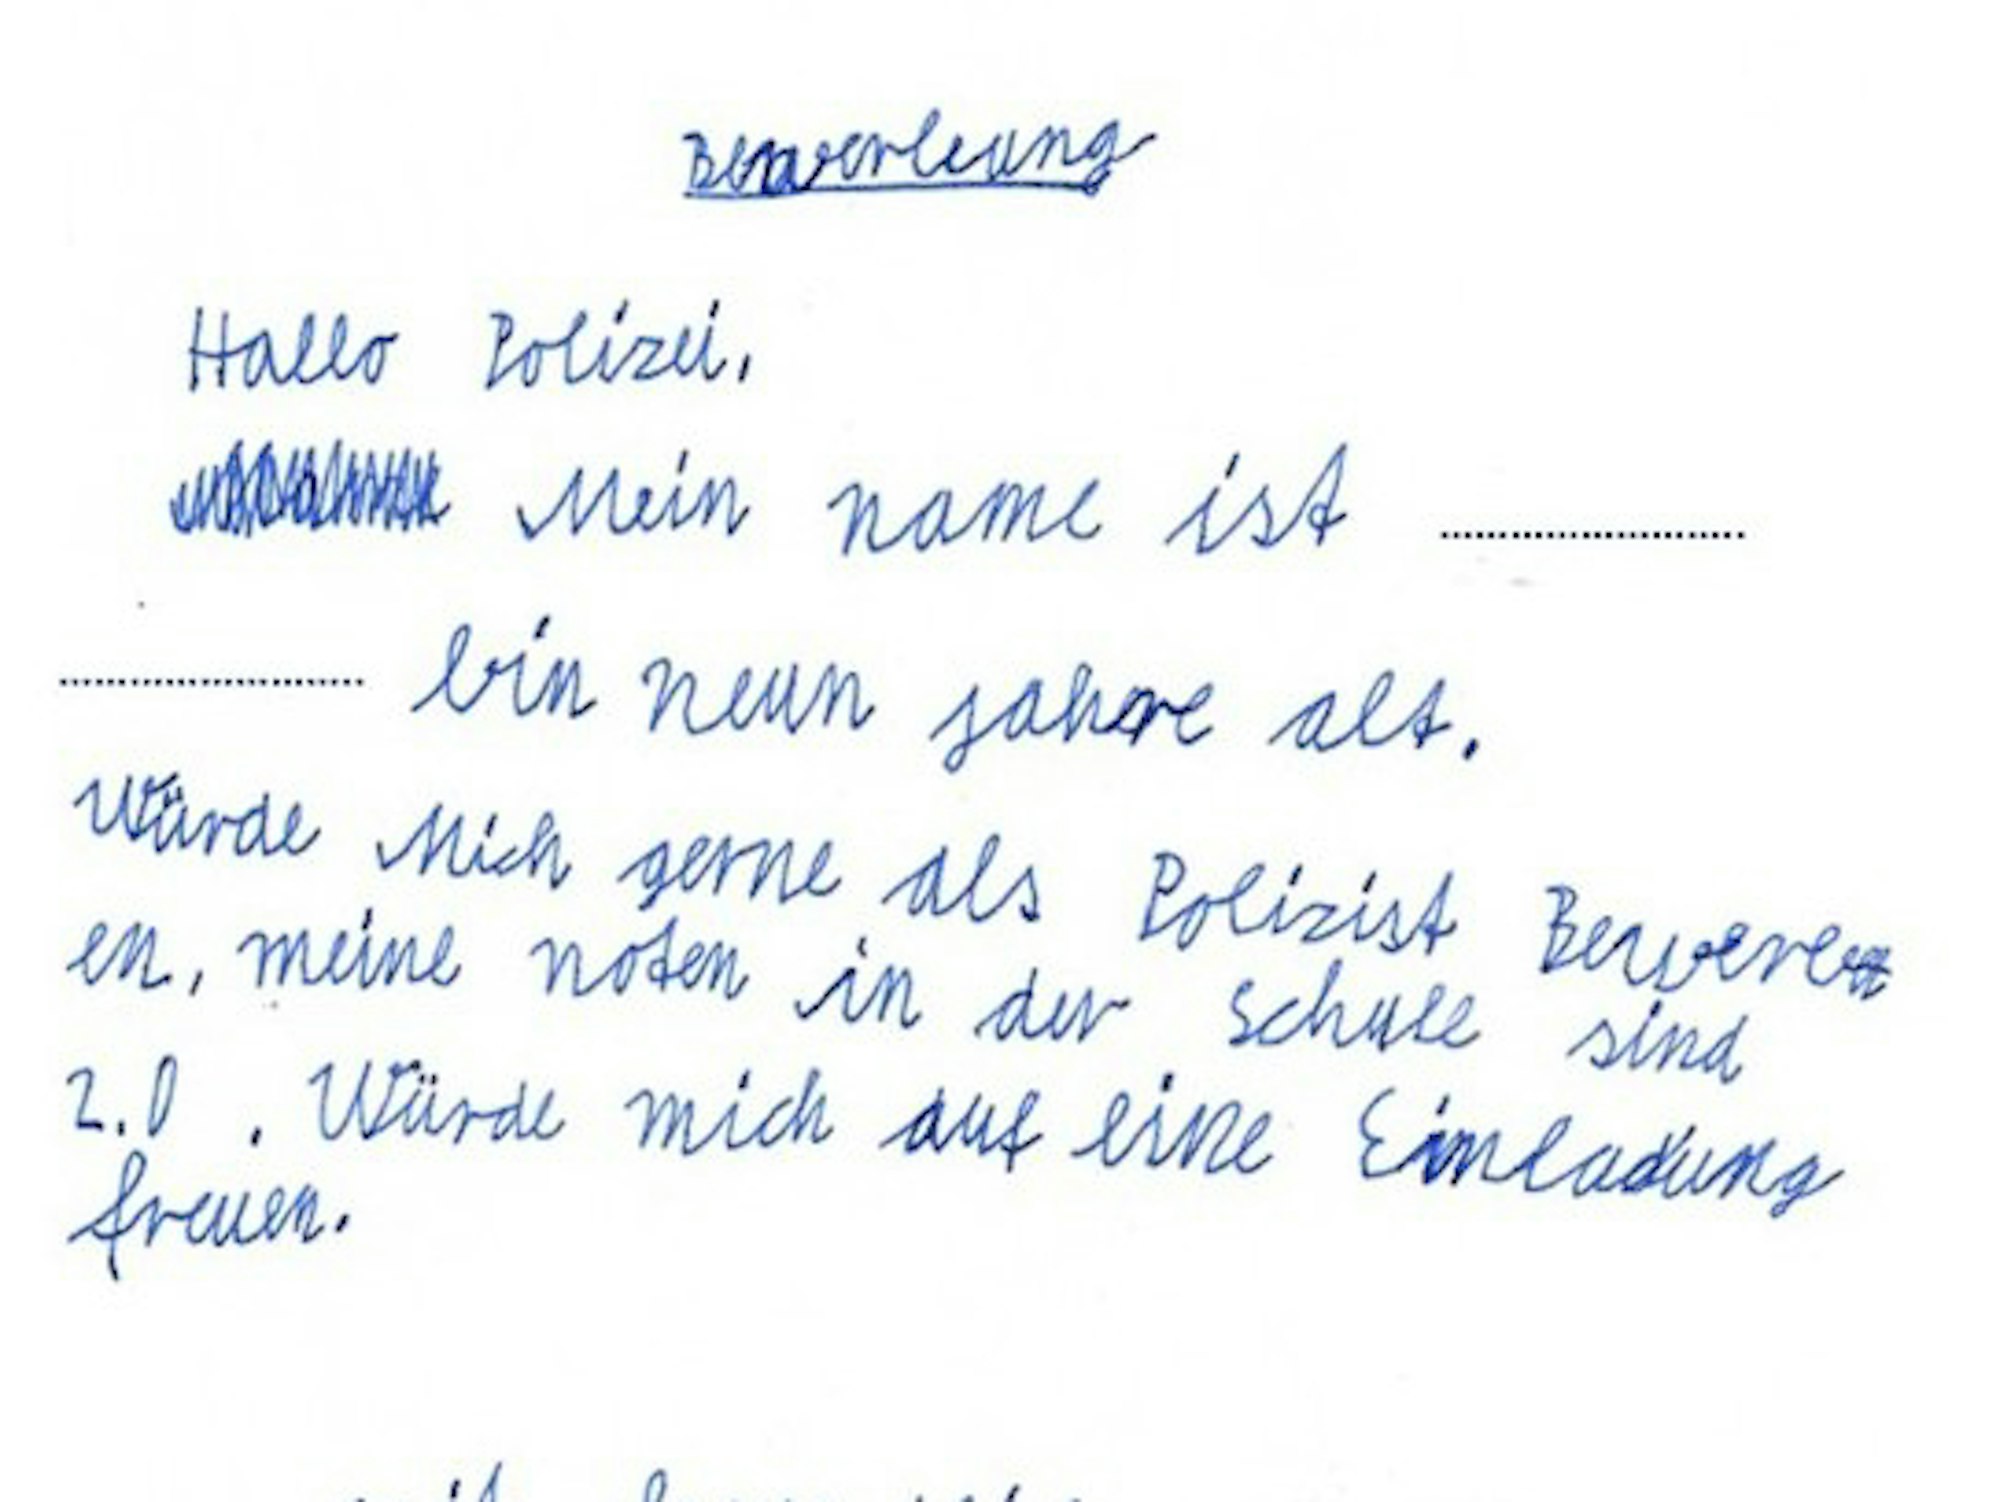 Bewerbung
Hallo Polizei,
Mein name ist
bin neun jahre alt.
Würde Mich gerne als Polizist Bewere
en, meine noten in der Schule sind
2.0 . Würde mich auf eine Einladung
freuen.